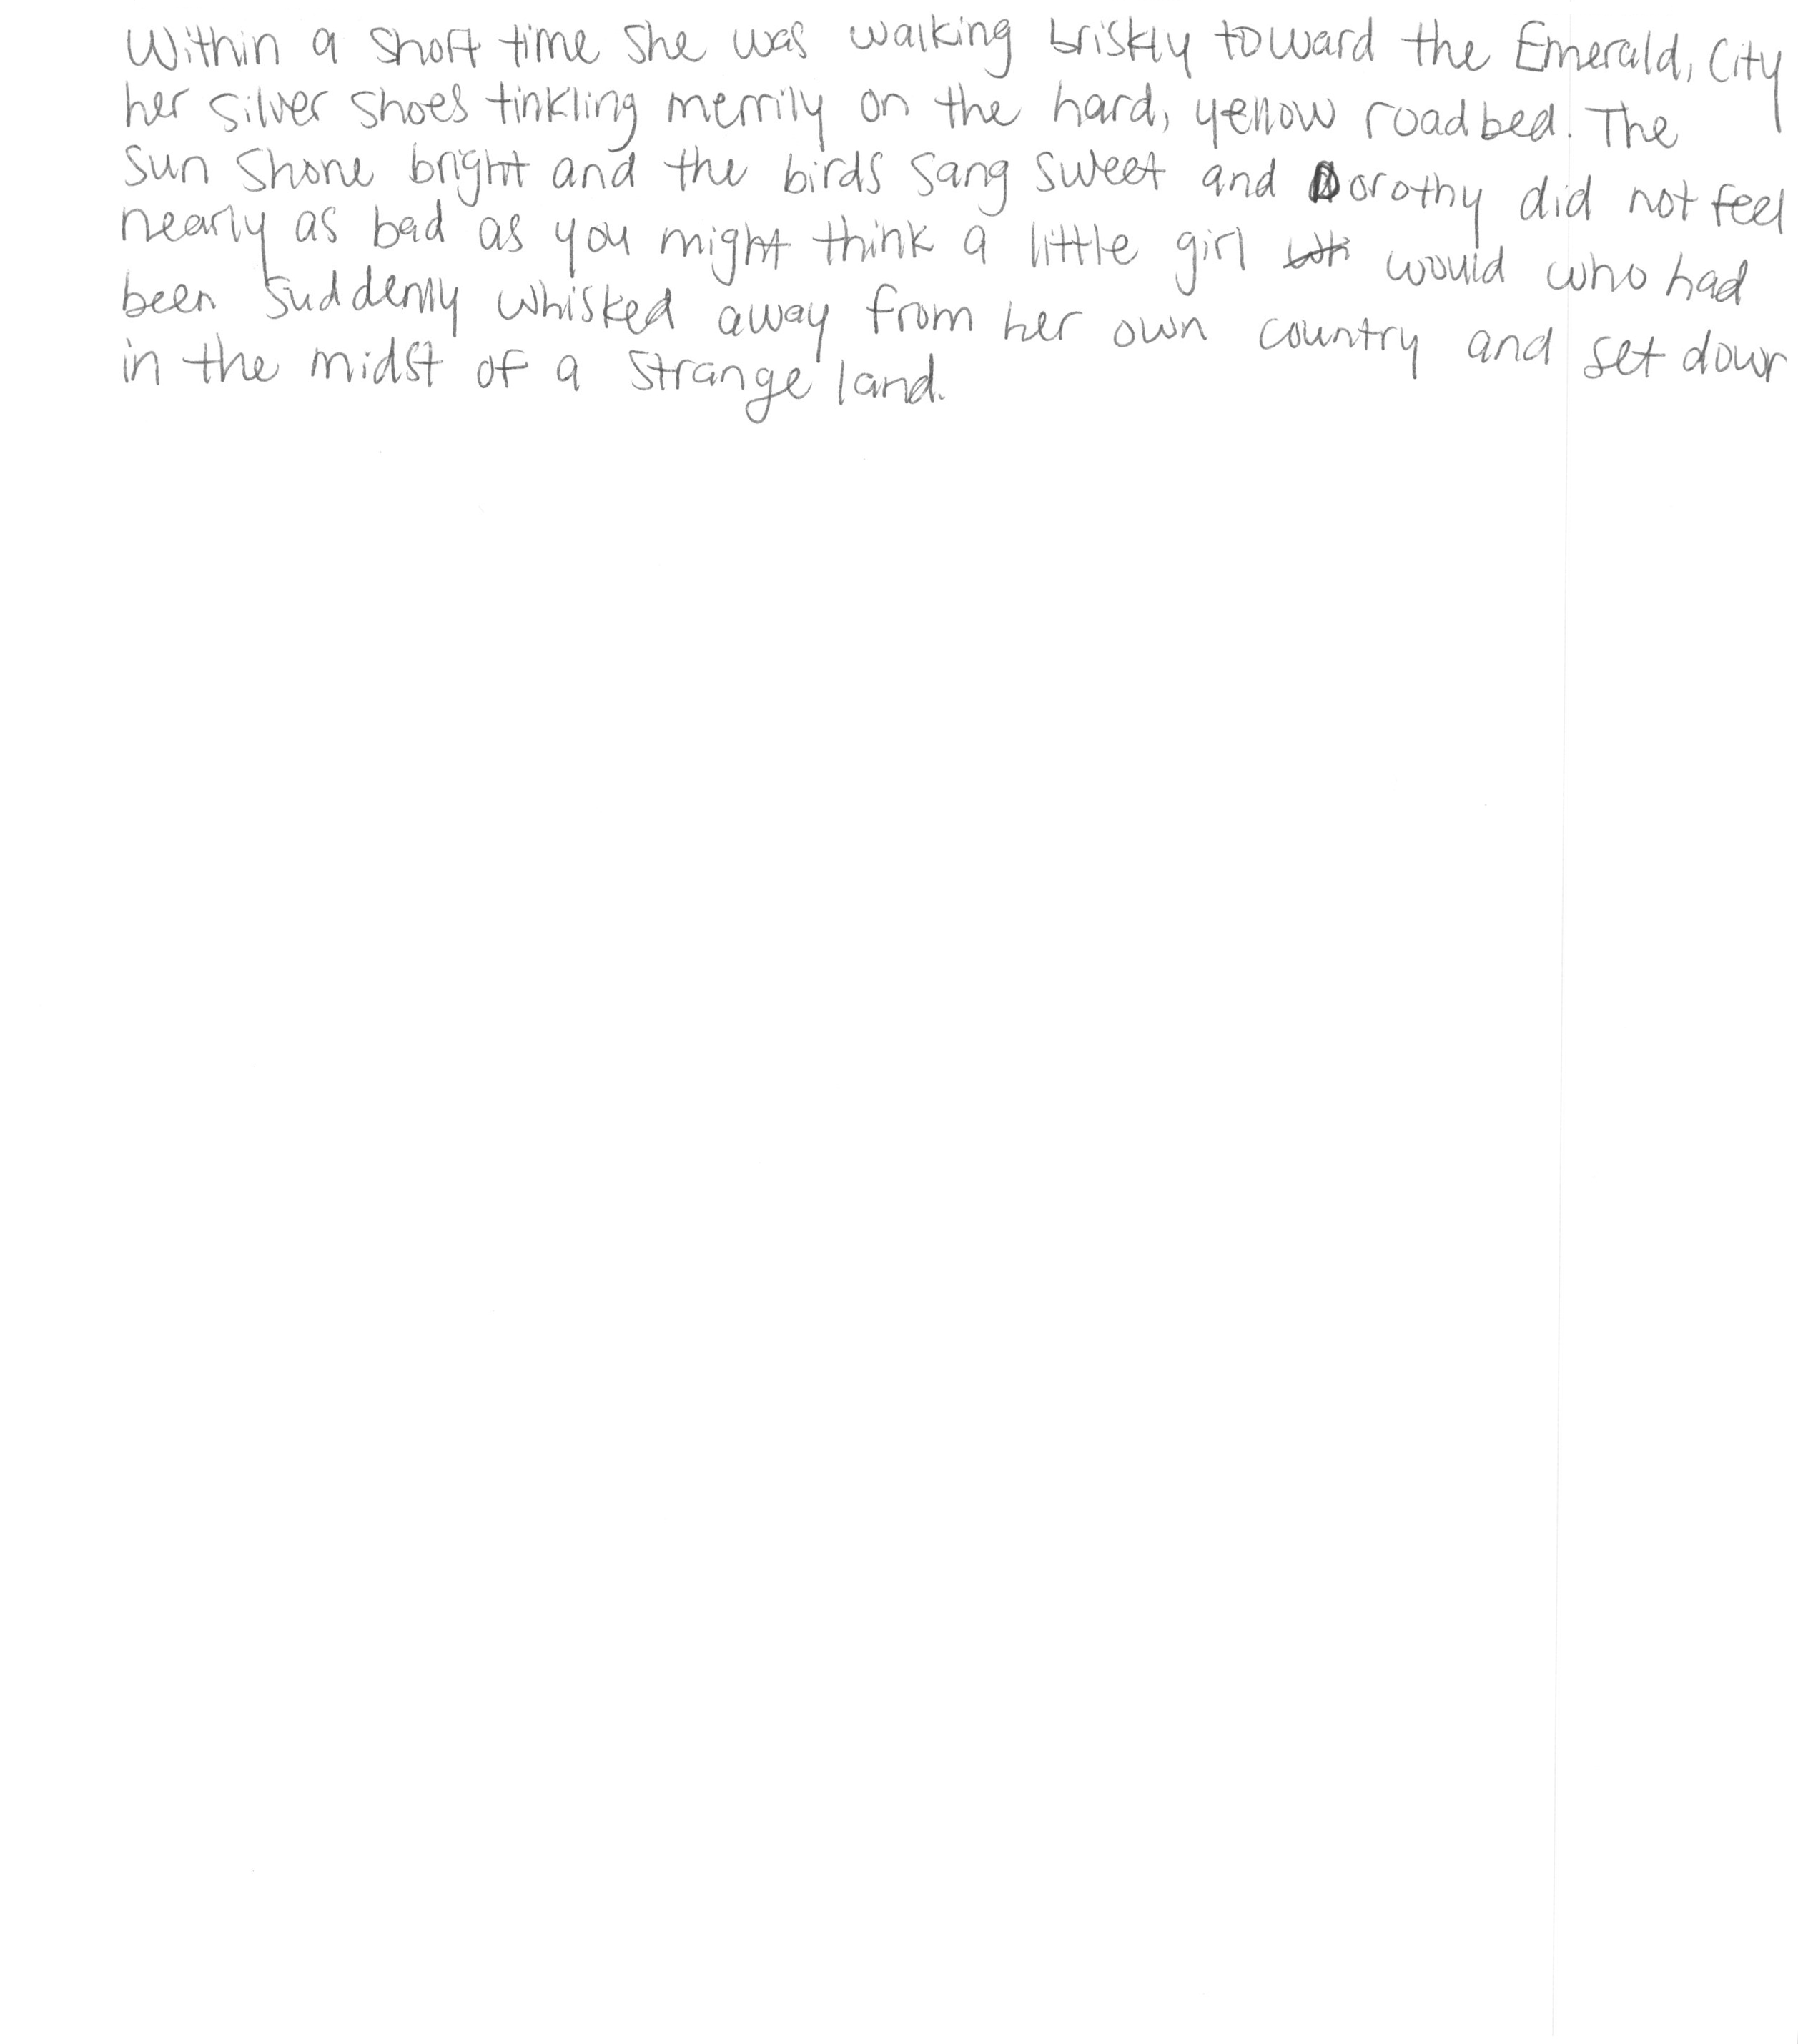 Within a short time she was walking briskly toward the Emerald, City
her silver shoes tinkling merrily on the hard, yellow roadbed. The
sun shone bright and the birds sang sweet and Dorothy did not feel
nearly as bad as you might think a little girl would who had
been suddenly whisked away from her own country and set down
in the midst of a strange land.